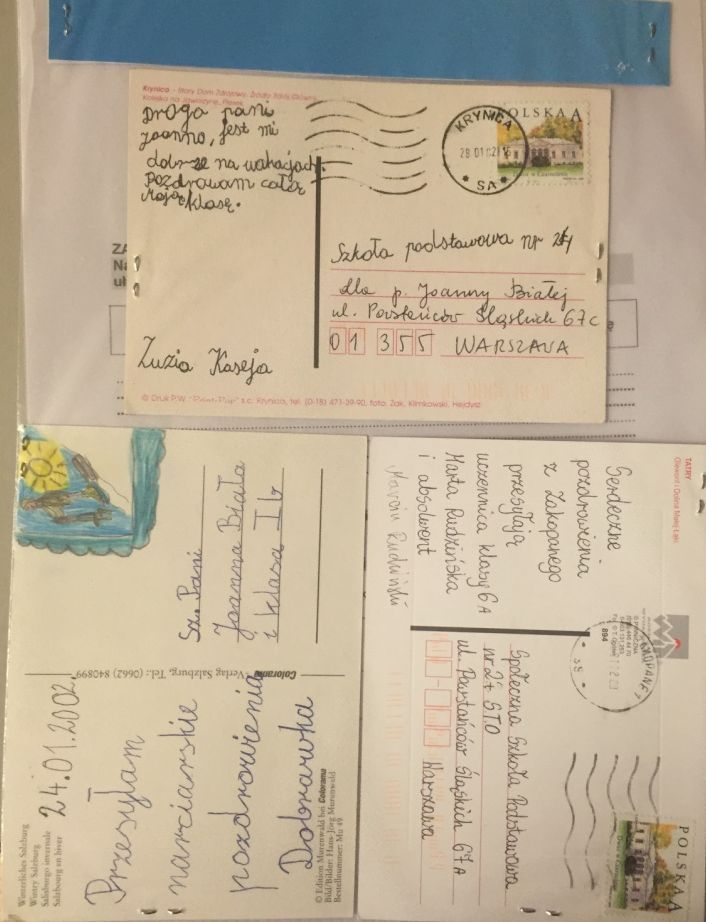 Krynica - Stary Dom Zdrojowy, Źródły Zdrój Główny,
Kolejka na Jaworzynę, Pijalnia
Droga pani
Joanno, Jest mi
dobrze na wakacjach.
Pozdrawiam całą
Moją klasę.
Zuzia Kaseja
POLSKA A
KRYNICA
28.01.02
SA
Szkoła podstawowa nr 24
dla p. Joanny Białej
ul. Powstańców Śląskich 67c
01 355 WARSZAWA
© Druk P.W. s.c. Krynica, tel. (0-18) 471-39-90, foto. Żak, Klimkowski, Hejdysz
ZA
Na
ul
Sz. Pani
Joanna Biała
i klasa I b
Verlag Salzburg, Tel.: (0662) 840899
Colorama
24.01.2002
Przesyłam
narciarskie
pozdrowienia
Dobrawka
Winterliches Salzburg
Wintry Salzburg
Salisburgo invernale
Salzbourg en hiver
© Edition Murenwald bei Colorama
Bild/Bilder: Hans-Jörg Murenwald
Bestellnummer: Mu 49
TATRY
Giewont i Dolina Małej Łąki
Serdeczne
pozdrowienia
z Zakopanego
przesyłają
uczennica klasy 6A
Marta Rudzińska
i absolwent
Marcin Rudziński
894
Społeczna Szkoła Podstawowa
nr 24 STO
ul. Powstańców Śląskich 67A
Warszawa
POLSKA A